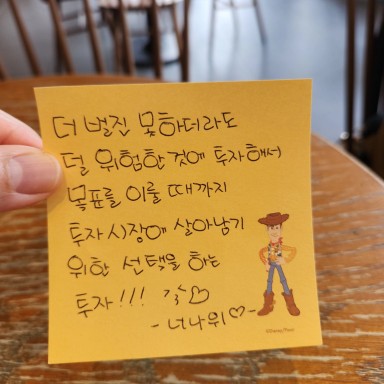 더 벌진 못하더라도
덜 위험한 것에 투자해서
목표를 이룰 때까지
투자 시장에 살아남기
위한 선택을 하는
투자!!! 각♡
- 너나위♡ -
©Disney/Pixar